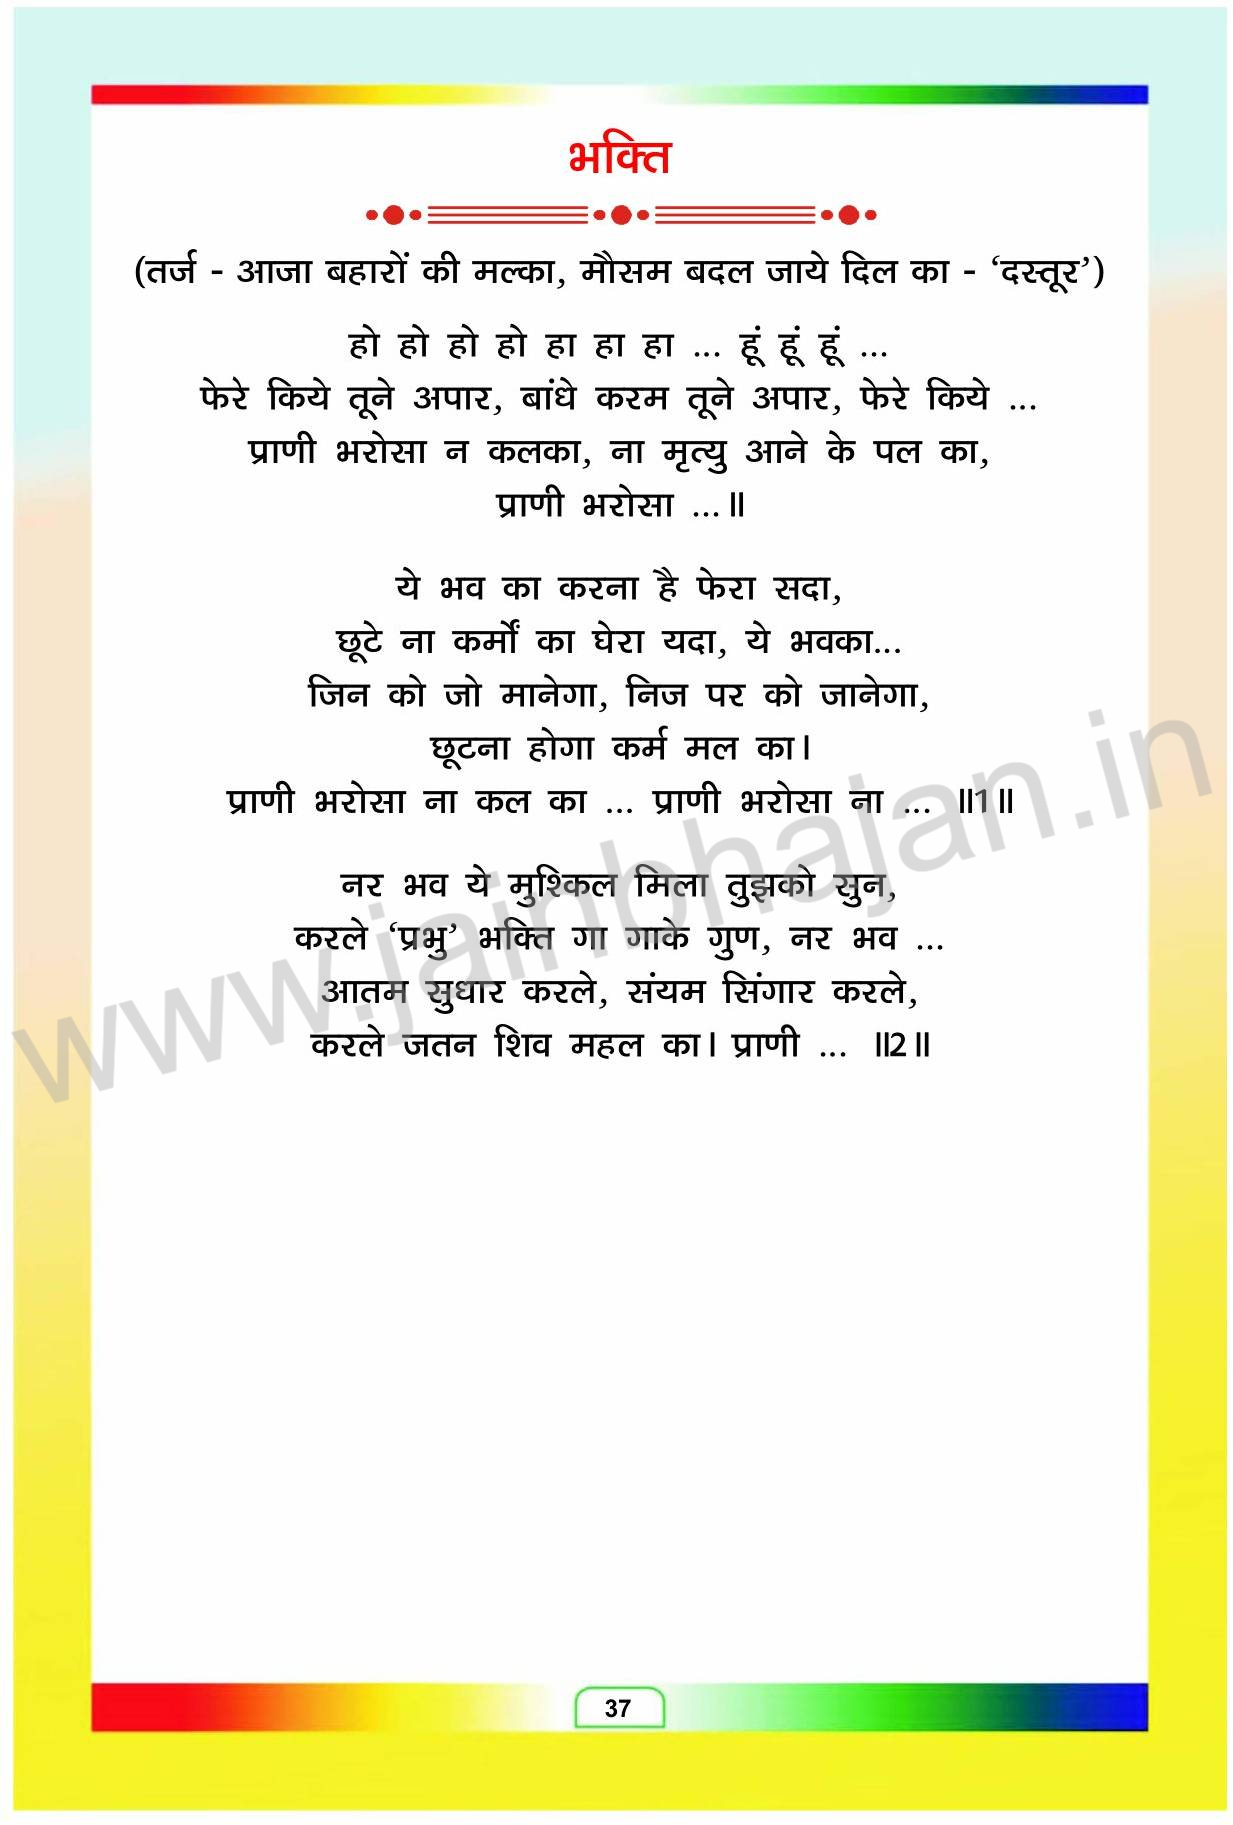 भक्ति
(तर्ज - आजा बहारों की मल्का, मौसम बदल जाये दिल का - ‘दस्तूर’)
हो हो हो हो हा हा हा ... हूं हूं हूं ...
फेरे किये तूने अपार, बांधे करम तूने अपार, फेरे किये ...
प्राणी भरोसा न कलका, ना मृत्यु आने के पल का,
प्राणी भरोसा ...॥
ये भव का करना है फेरा सदा,
छूटे ना कर्मों का घेरा यदा, ये भवका...
जिन को जो मानेगा, निज पर को जानेगा,
छूटना होगा कर्म मल का।
प्राणी भरोसा ना कल का ... प्राणी भरोसा ना ... ॥1॥
नर भव ये मुश्किल मिला तुझको सुन,
करले ‘प्रभु’ भक्ति गा गाके गुण, नर भव ...
आतम सुधार करले, संयम सिंगार करले,
करले जतन शिव महल का। प्राणी ... ॥2॥
www.jainbhajan.in
37